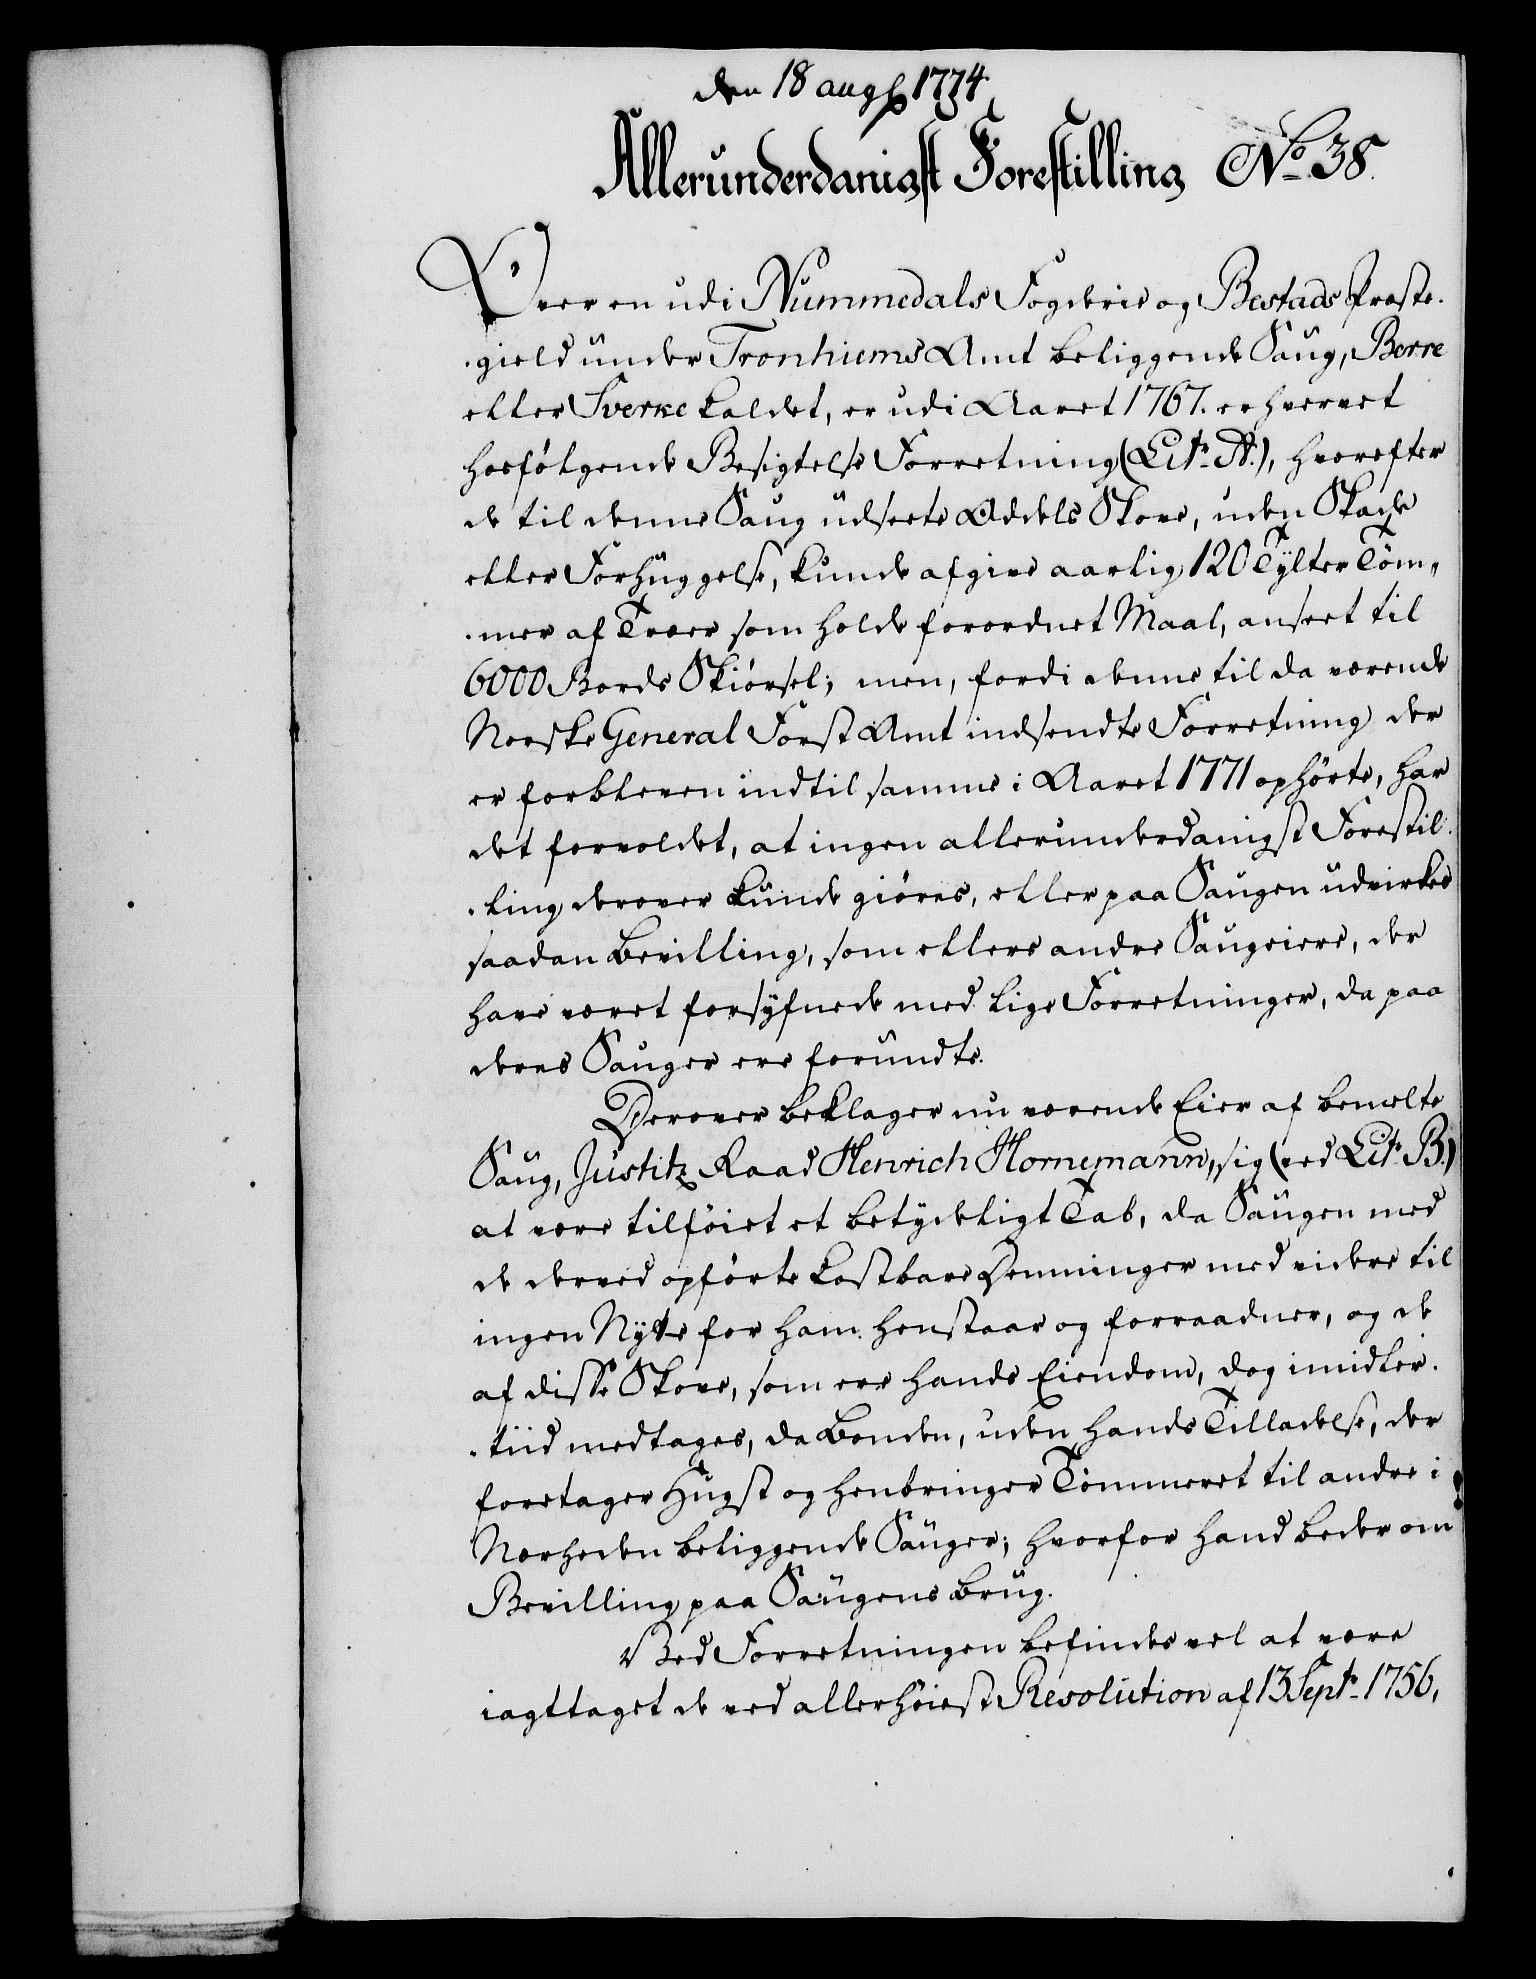 den 18 aug 1774
Allerunderdanigst Forestilling No 38.
Over en udi Nummedals Fogderie og Bestads Præste-
-gield under Tronhiems Amt beliggende Saug, Borre
eller Sverke kaldet, er udi Aaret 1767. erhvervet
hosfølgende Besigtelse Forretning (Litr. A.), hvorefter
de til denne Saug udseete Oddels Skove, uden Skade
eller Forhuggelse, kunde afgive aarlig 120 Tylter Tøm-
-mer af Træer som holde forordnet Maal, anseet til
6000 Bords Skiørsel; men, fordi denne til da værende
Norske General Forst Amt indsendte Forretning der
er forbleven indtil samme i Aaret 1771 ophørte, har
det forvoldet, at ingen allerunderdanigst Forestil-
-ling derover kunde giøres, eller paa Saugen udvirkes
saadan Bevilling, som ellers andre Saugeiere, der
have været forsynede med lige Forretninger, da paa
deres Sauger ere forundte.
Derover beklager nu værende Eier af bemelte
Saug, Justitz Raad Henrich Hornemann, sig (ved Litr. B.)
at være tilføiet et betydeligt Tab, da Saugen med
de derved opførte kostbare Demninger med videre til
ingen Nytte for ham henstaar og forraadner, og de
af disse Skove, som ere hands Eiendom, dog imidler-
-tiid medtages, da Bonden, uden hands Tilladelse, der
foretager Hugst og henbringer Tømmeret til andre i
Nærheden beliggende Sauger; hvorfor hand beder om
Bevilling paa Saugens brug.
Ved Forretningen befindes vel at være
iagttaget de ved allerhøieste Resolution af 13 Septr. 1756,